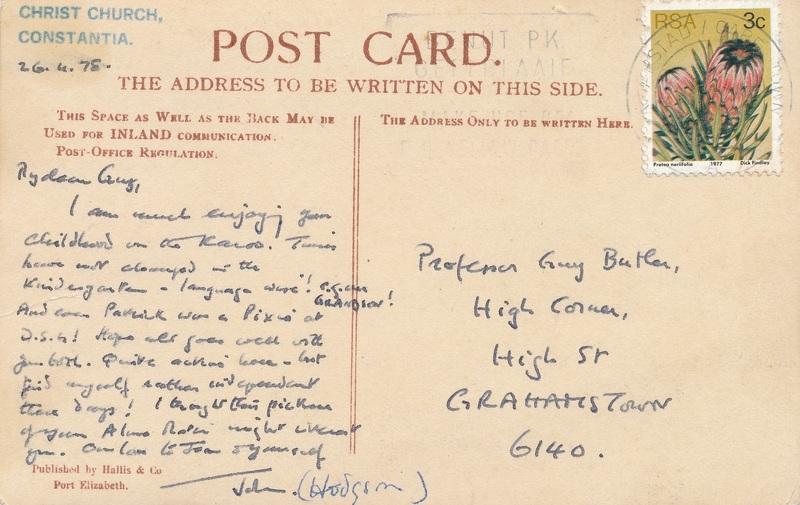 CHRIST CHURCH,
CONSTANTIA.
26.4.78.
POST CARD.
THE ADDRESS TO BE WRITTEN ON THIS SIDE.
THIS SPACE AS WELL AS THE BACK MAY BE
USED FOR INLAND COMMUNICATION.
POST-OFFICE REGULATION.
THE ADDRESS ONLY TO BE WRITTEN HERE.
RSA 3c
Protea neriifolia 1977 Dick Findlay
BENUT PK.
My dear Guy,
I am much enjoying your
childhood in the Karoo. Times
have not changed in the
Kindergarten - language wise! e.g. our
GRANDSON!
And even Patrick was a Pixie at
D.S.G! Hope all goes well with
you both. Quite active here - but
find myself rather independent
these days! I thought this picture
of your Alma Mater might interest
you. Our love to Jean & yourself
John. (Hodgson)
Professor Guy Butler,
High Corner,
High St
GRAHAMSTOWN
6140.
Published by Hallis & Co
Port Elizabeth.